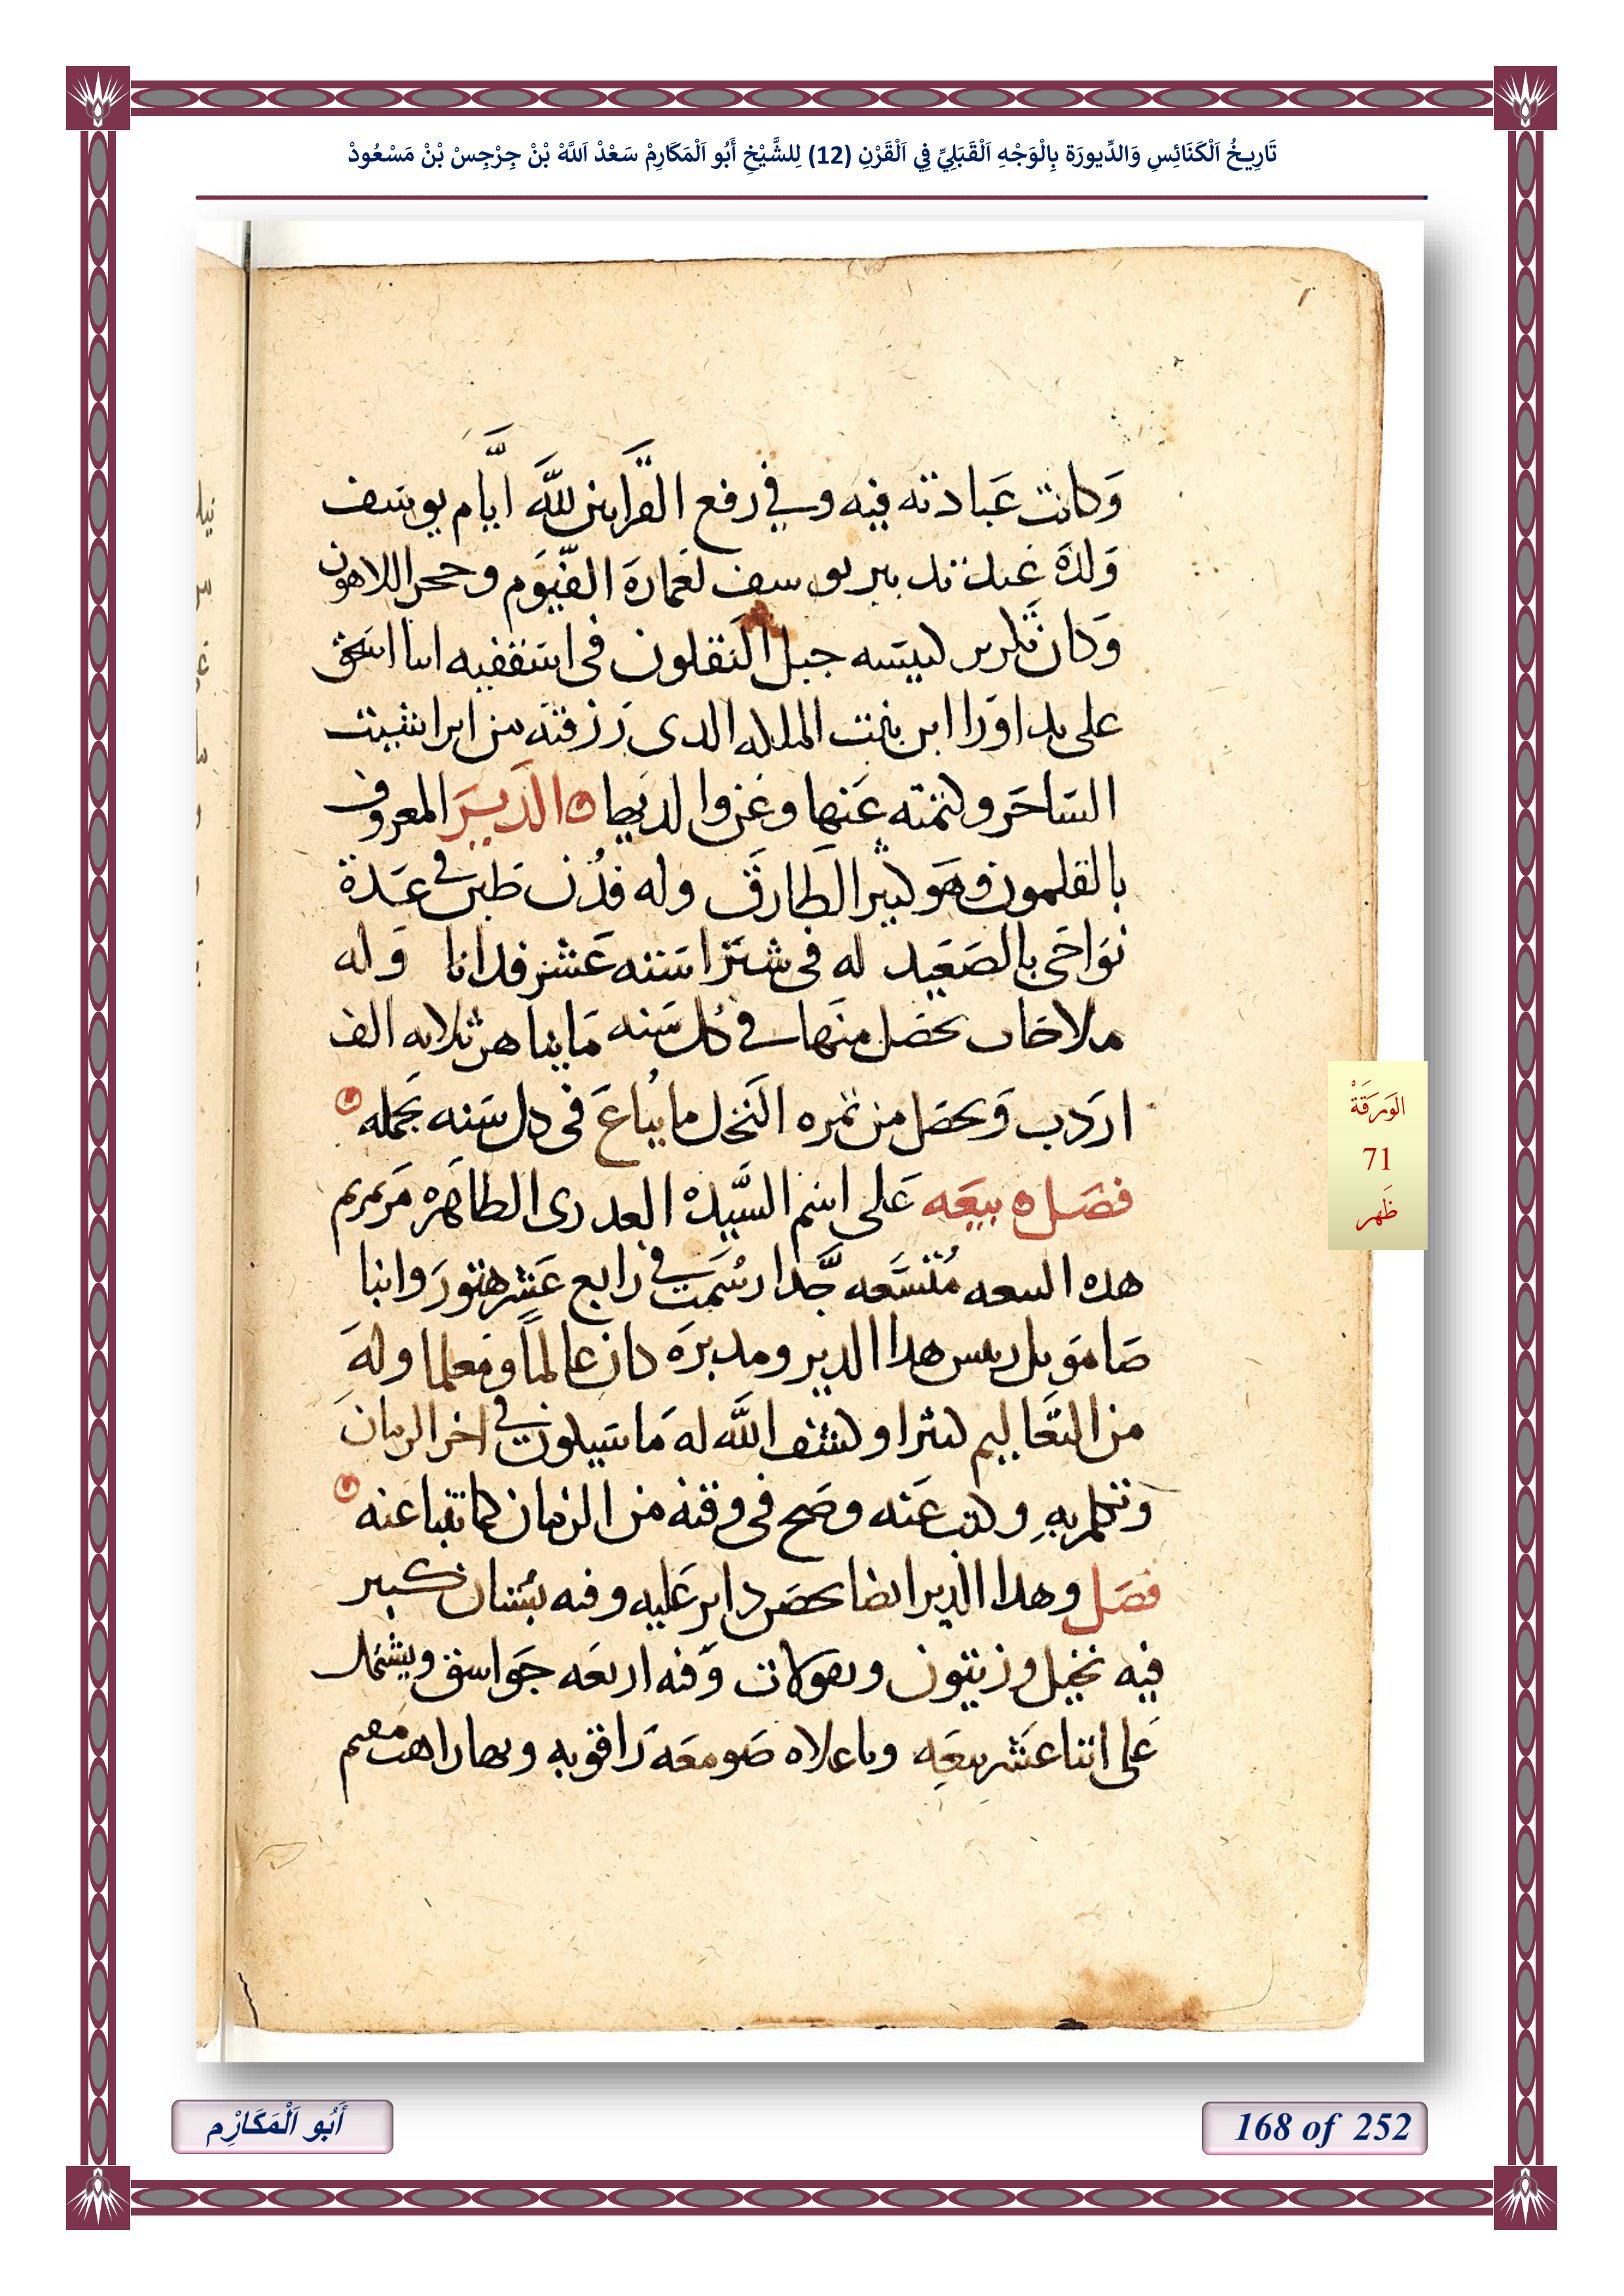 تَارِيخُ اَلْكَنَائِسِ وَالدِّيورَة بِالْوَجْهِ اَلْقَبَلِيِّ فِي اَلْقَرْنِ (12) لِلشَّيْخِ أَبُو اَلْمَكَارِمْ سَعْدْ اَللَّهْ بْنْ جِرْجِسْ بْنْ مَسْعُودْ
وَكانت عَبادته فيه وفي رفع القرابين للَّه ايَّام يوسَف
وَلدَة عند تدبير يوسف لعمارة الفيّوم وحجر اللاهون
وَكان تكريز كنيسه جبل النقلون في اسقفيه انبا اسحَق
على يد اورا ابن بنت الملك الدى رَزقته من ابراشيت
السَاحَر وكتمته عَنها وغزوا لديطا ه الدَيرَ المعروف
بالقلمون فهو كبير الطارق وله فدن طين في عدة
نوَاحَى بالصَعَيد له فى شنرا ستنه عَشر فدانا وَله
ملاحات تحصَل منهَا في كل سَنه مَا يناهز ثلاثه الف
اردَب وَيحصَل من ثمره النخل ما يباع فى كل سَنه بجمله
فصَل ه بيعَه عَلى اسم السَّيدة العدرى الطاهرَه مَرتمريم
هده البيعه مُتسَعه جَّدا رسُمَت في رابع عَشر هتورَ وانبا
صَامَويل ريس هدا الدير ومدبرَه كان عالمًا ومعلما ولهَ
من التعَاليم كثيرا وكشف اللَّه له مَا سَيكون في اخر الزمان
وَتكلم بهِ وكتب عَنه وصَح فى وقته من الزمان كما تنبا عنه
فصَل وهدا الدير ايضا بحصَن داير عَليه وفيه بسُتان كبير
فيه نخيل وزيتون وبقولات وَفيه اربعَه جَواسق ويشتمل
عَلى اتنا عَشر بيعَهِ وباعلاه صَومعَة رَاقوبه وبها راهب مقيم
الوَرَقَةْ
71
ظَهر
أَبُو اَلْمَكَارْم
168 of 252